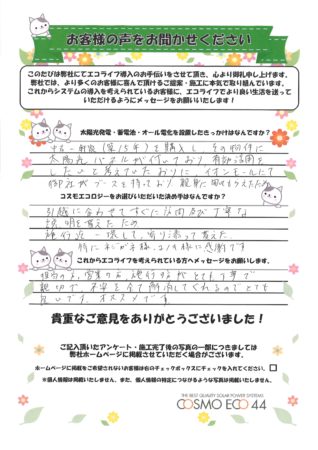 お客様の声をお聞かせください
このたびは弊社にてエコライフ導入のお手伝いをさせて頂き、心より御礼申し上げます。
弊社では、より多くのお客様に喜んで頂ける様ご提案・施工に本気で取り組んでいます。
これからシステムの導入を考えられているお客様に、エコライフでより良い生活を送って
いただけるようにメッセージをお願いいたします!
太陽光発電・蓄電池・オール電化を設置したきっかけはなんですか?
中古一軒家(築15年)を購入し、その物件に
太陽光パネルが付いており、有効活用を
したいと考えていたおりに、イオンモールにて
コスモエコロジーをお選びいただいた決め手はなんですか?
引越に合わせてすぐに
説明を
これからエコライフを考えられている方へメッセージをお願いします。
担当の方、営業の方、施行する方 とても丁寧で
親切で、不安を全て解消してくれるのでとても
良いです。オススメです。
貴重なご意見をありがとうございました!
ご記入頂いたアンケート・施工完了後の写真の一部につきましては
弊社ホームページに掲載させていただく場合がございます。
ホームページに掲載をご希望されないお客様は右のチェックボックスにチェックを入れてください。
※個人情報は掲載いたしません、また、個人情報の特定につながるような写真は掲載いたしません。
THE BEST QUALITY SOLAR POWER SYSTEMS
COSMO ECO 44